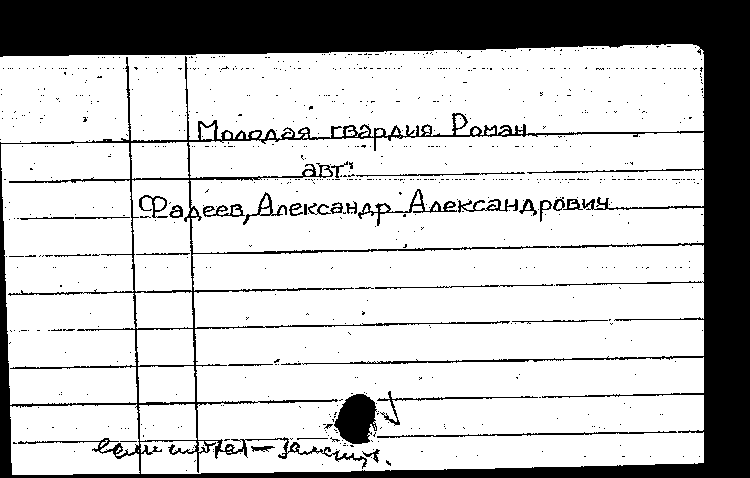 Молодая гвардия. Роман
авт.
Фадеев, Александр Александрович
если плохая —